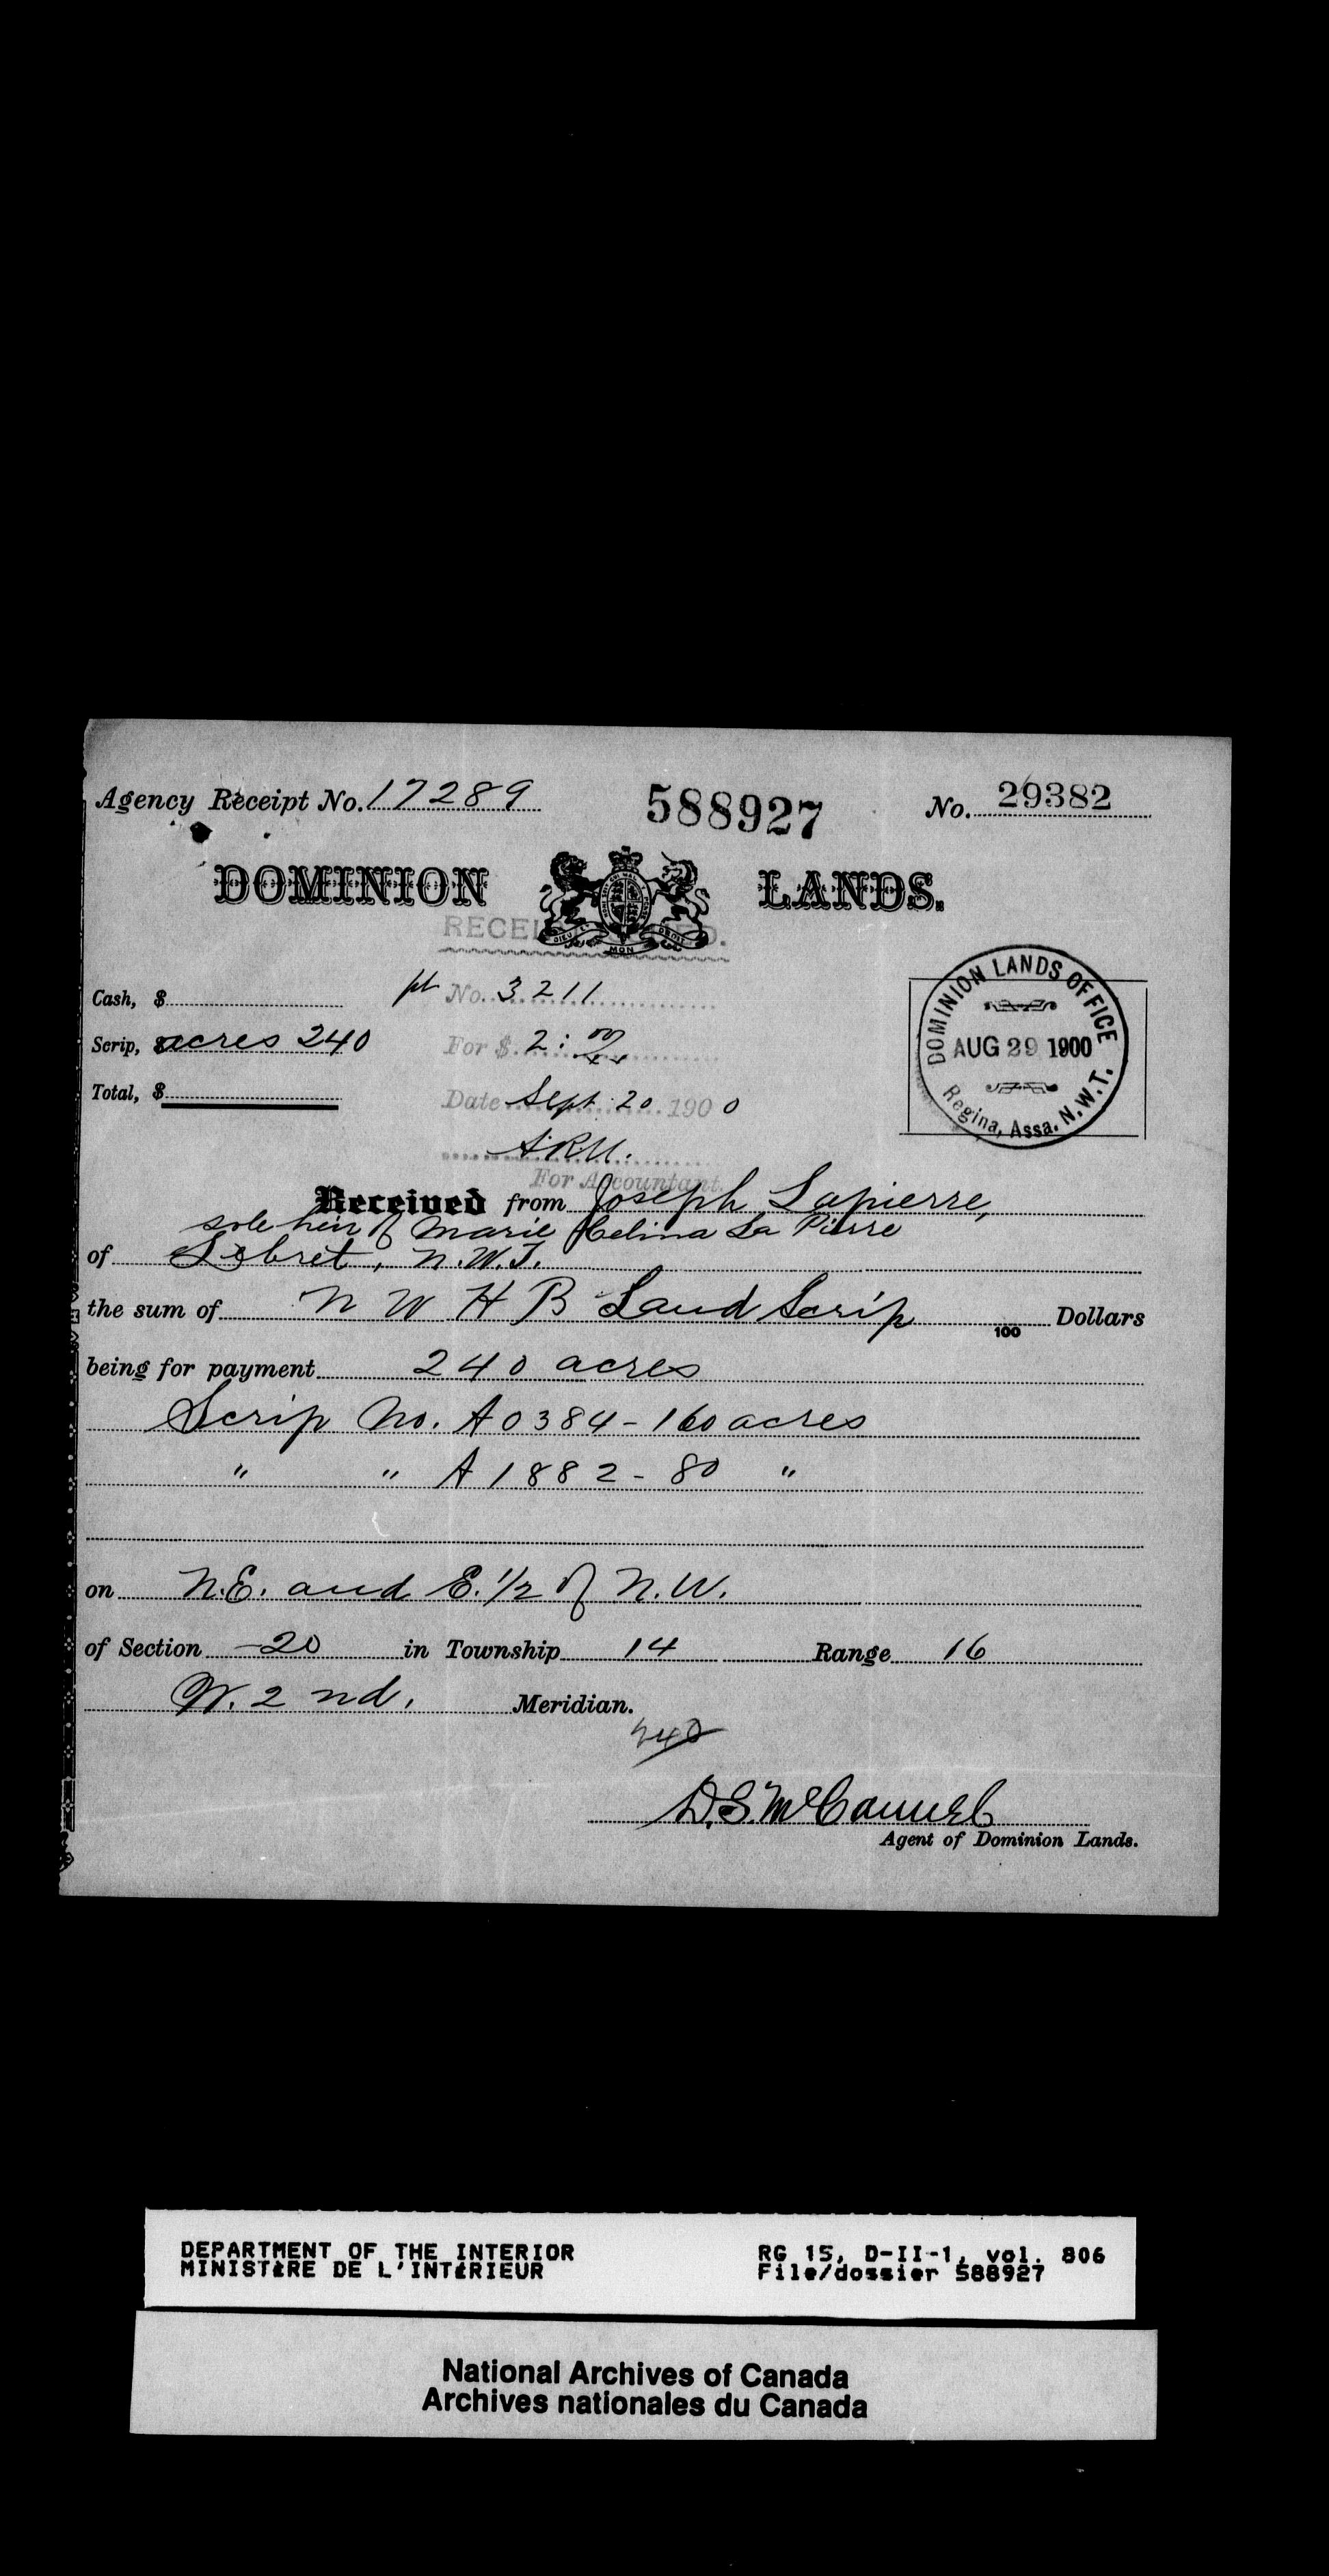 Agency Receipt No. 17289 588927 No. 29382
DOMINION LANDS.
DIEU ET MON DROIT
Cash, $ pt No. 3211
Scrip, $ acres 240 For $ 2:00
Total, $ Date Sept. 20 1900
For Accountant.
DOMINION LANDS OFFICE
AUG 29 1900
Regina, Assa. N.W.T.
Received from Joseph Lapierre,
sole heir of Marie Celina La Pierre
of Lebret, N.W.T.
the sum of N W H B Land Scrip 100 Dollars
being for payment 240 acres
Scrip No. A0384 - 160 acres
" " A1882 - 80 "
on N.E. and E. 1/2 of N.W.
of Section 20 in Township 14 Range 16
W. 2nd. Meridian.
240
D.S. McCannel
Agent of Dominion Lands.
DEPARTMENT OF THE INTERIOR RG 15, D-II-1, vol. 806
MINISTÈRE DE L'INTÉRIEUR File/dossier 588927
National Archives of Canada
Archives nationales du Canada